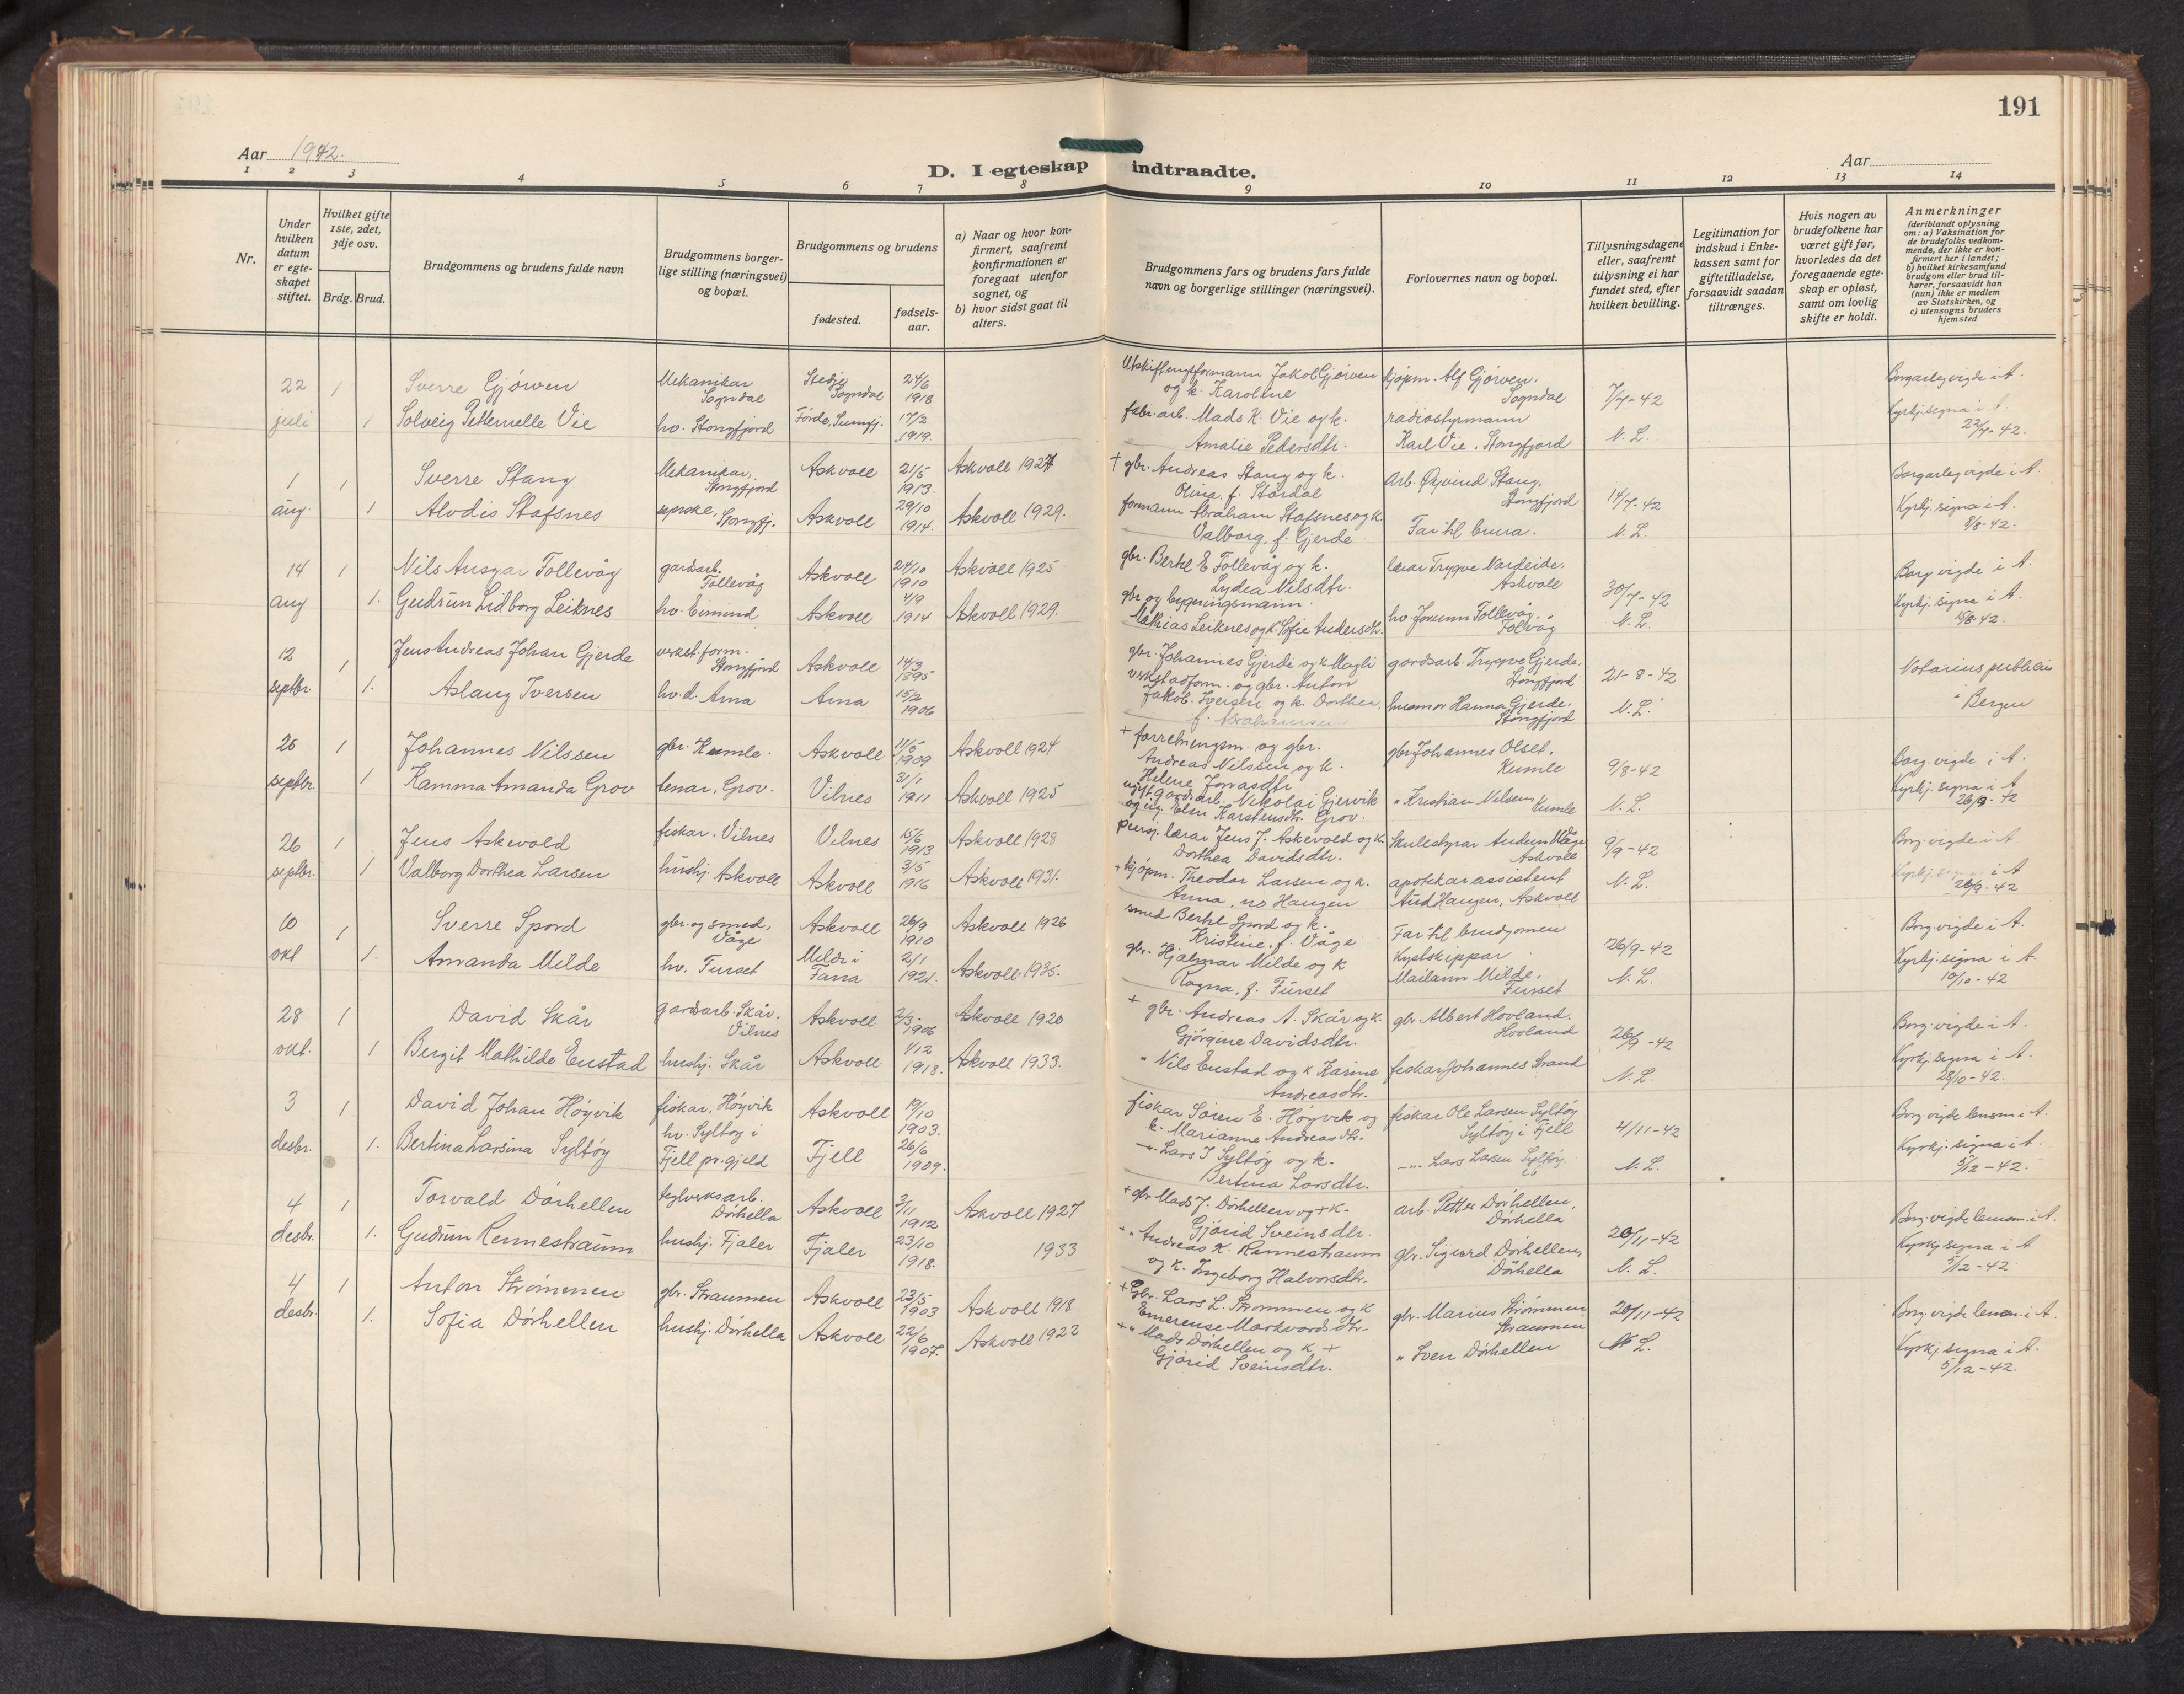 191
Aar 1942.
Aar
D. I egteskap indtraadte.
1 2 3 4 5 6 7 8 9 10 11 12 13 14
Nr.
Under hvilken datum er egteskapet stiftet.
Hvilket gifte 1ste, 2det, 3dje osv.
Brdg. Brud.
Brudgommens og brudens fulde navn
Brudgommens borgerlige stilling (næringsvei) og bopæl.
Brudgommens og brudens
fødested.
fødselsaar.
a) Naar og hvor konfirmert, saafremt konfirmationen er foregaat utenfor sognet, og
b) hvor sidst gaat til alters.
Brudgommens fars og brudens fars fulde navn og borgerlige stillinger (næringsvei).
Forlovernes navn og bopæl.
Tillysningsdagene eller, saafremt tillysning ei har fundet sted, efter hvilken bevilling.
Legitimation for indskud i Enkekassen samt for giftetilladelse, forsaavidt saadan tiltrænges.
Hvis nogen av brudefolkene har været gift før, hvorledes da det foregaaende egteskap er opløst, samt om lovlig skifte er holdt.
Anmerkninger (deriblandt oplysning om: a) Vaksination for de brudefolks vedkommende, der ikke er konfirmert her i landet; b) hvilket kirkesamfund brudgom eller brud tilhører, forsaavidt han (hun) ikke er medlem av Statskirken, og c) utensogns bruders hjemsted
22 1 Sverre Gjørven Mekanikar Sogndal Stedje Sogndal 24/6 1918 Utskiftingsformann Jakob Gjørven og k. Karoline kjøpm. Alf Gjørven, Sogndal 7/7-42 Borgarleg vigde i A.
juli 1 Solveig Petternelle Vie hv. Stongfjord Førde, Sunnfj. 17/2 1919. fabr. arb. Mads K. Vie og k. Amalie Pedersdtr. radiostyrmann Karl Vie, Stongfjord N. L. Kyrkj. signa i A. 22/7-42.
1 1 Sverre Stang Mekanikar, Stongfjord Askvoll 21/5 1913. Askvoll 1927 + gbr. Andreas Stang og k. Olina, f. Stardal Arb. Øyvind Stang, Stongfjord 14/7-42 Borgarleg vigde i A.
aug. 1 Alvdis Stafsnes syerske, Stongfj. Askvoll 29/10 1914. Askvoll 1929. formann Abraham Stafsnes og k. Valborg, f. Gjerde Far til brura. N. L. Kyrkj. signa i A. 8/8-42.
14 1 Nils Ansgar Follevåg gardsarb. Follevåg Askvoll 24/10 1910 Askvoll 1925 gbr. Bertel E Follevåg og k. Lydia Nilsdtr. lærar Trygve Nordeide, Askvoll 30/7-42 Borg. vigde i A.
aug 1. Gudrun Lidborg Leiknes hv. Eimind Askvoll 4/9 1914 Askvoll 1929. gbr og bygningsmann. Mathias Leiknes og k. Sofie Andersdtr. hv Jorunn Follevåg, Folvåg N. L. Kyrkj. signa i A. 15/8-42.
12 1 Jens Andreas Johan Gjerde verkst. form. Stongfjord Askvoll 14/3 1895 gbr. Johannes Gjerde og k Magli gardsarb. Trygve Gjerde, Stongfjord 21-8-42 Notarius publicus
septbr. 1. Aslaug Iversen hv. d. Arna Arna 15/2 1906 verkstadform. og gbr. Anton Jakob. Iversen og k. Dorthea, f. Abrahamsen husmor Hanna Gjerde, Stongfjord N. L. " Bergen
25 1 Johannes Nilssen gbr. Kumle. Askvoll 11/5 1909 Askvoll 1924 + forretningsm. og gbr. Andreas Nilssen og k. Helene Jonasdtr gbr Johannes Olset, Kumle 9/8-42 Borg. vigde i A.
septbr. 1 Kamma Amanda Grov tenar, Grov. Vilnes 31/1 1911 Askvoll 1925 ugift gardsarb. Nikolai Gjervik og ug. Elen Karstensdtr. Grov. " Kristian Nilsen, Kumle N. L. Kyrkj. signa i A 26/9-42
26 1 Jens Askevold fiskar, Vilnes Vilnes 15/6 1913 Askvoll 1928 pensj. lærar Jens J. Askevold og k. Dorthea Davidsdtr. Skulestyrar Audun Våge Askvoll 9/9-42 Borg. vigde i A
septbr. 1 Valborg Dorthea Larsen hushj. Askvoll Askvoll 3/5 1916 Askvoll 1931. + kjøpm. Theodor Larsen og k. Anna, no Haugen apotekarassistent Aud Haugen, Askvoll N. L. Kyrkj. signa i A 26/9-42
10 1 Sverre Spord gbr. og smed, Våge Askvoll 26/9 1910 Askvoll 1926 smed Bertel Spord og k. Kristine, f. Våge Far til brudgomen 26/9-42 Borg. vigde i A.
okt 1. Amanda Milde hv. Furset Milde i Fana 2/1 1921. Askvoll 1935. gbr. Hjalmar Milde og k Ragna, f. Furset Kystskippar Mailann Milde, Furset N. L. Kyrkj. signa i A. 10/10-42
28 1 David Skår gardsarb. Skår, Vilnes Askvoll 2/3. 1906 Askvoll 1920 + gbr. Andreas A. Skår og k. Gjørgine Davidsdtr. gbr. Albert Hovland, Hovland 26/9-42 Borg. vigde i A.
okt. 1 Bergit Mathilde Eustad hushj. Skår Askvoll 1/12 1918. Askvoll 1933. " Nils Eustad og k Karine Andreasdtr. fiskar Johannes Strand N. L. Kyrkj. signa i A. 28/10-42.
3 1 David Johan Høyvik fiskar, Høyvik Askvoll 19/10 1903. fiskar Søren E. Høyvik og k. Marianne Andreasdtr. fiskar Ole Larsen Syltøy Syltøy i Fjell 4/11-42 Borg. vigde lensm i A.
desbr. 1. Bertina Larsina Syltøy hv. Syltøy i Fjell pr. gjeld Fjell 26/6 1909. -"- Lars J Syltøy og k. Bertina Larsdtr. -"- Lars Larsen Syltøy. N. L. Kyrkj. signa i A. 5/12-42.
4 1 Torvald Dørhellen teglverksarb. Dørhella Askvoll 3/11 1912 Askvoll 1927 + gbr Mads J. Dørhellen og + k- Gjørid Sveinsdtr. arb. Petter Dørhellen, Dørhella 20/11-42 Borg. vigde lensm. i A.
desbr. 1. Gudrun Rennestraum hushj. Fjaler Fjaler 23/10 1918. 1933 + " Andreas K. Rennestraum og k. Ingeborg Halvorsdtr. gbr. Sigurd Dørhellen, Dørhella N. L. Kyrkj. signa i A 5/12-42
4 1 Anton Strømmen gbr. Straumen Askvoll 23/5 1903 Askvoll 1918 + Gbr. Lars L. Strømmen og k Emerense Markvardsdtr. gbr. Marius Strømmen Straumen 20/11-42 Borg. vigde lensm. i A.
desbr. 1. Sofia Dørhellen hushj. Dørhella Askvoll 22/6 1907. Askvoll 1922 + " Mads Dørhellen og k + Gjørid Sveinsdtr. " Sven Dørhellen N. L. Kyrkj. signa i A. 5/12-42.